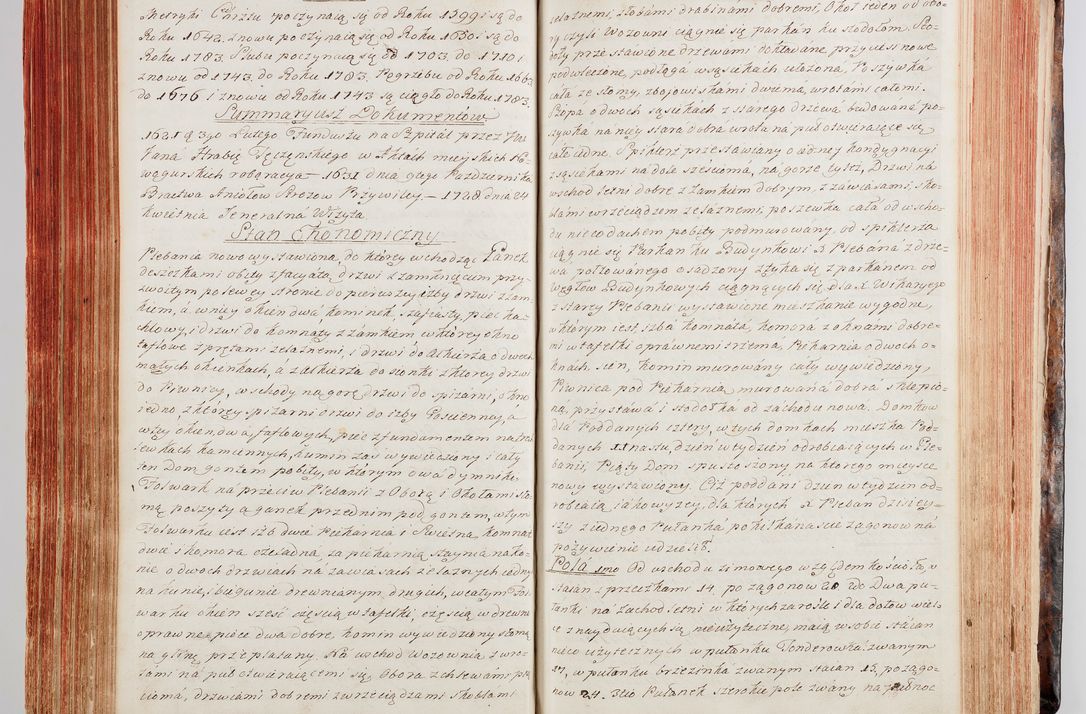 Metryki Chrztu poczynaią się od Roku 1599 i są do
Roku 1643. znowu poczynaią się od Roku 1650 i są do
Roku 1783. Slubu poczynaią są od 1703. do 1710 i
znowu od 1743. do Roku 1783. Pogrzebu od Roku 1663.
do 1676 i znowu od Roku 1743 są ciągło do Roku 1783.
Summaryusz Dokumentow
1631 q 3go Lutego Funduszu na Szpital przez Jana
Hrabię Tęczyńskiego w Aktach mieyskich
roboracya — 1631 dnia 9tego Pazdziernika
Bractwa Aniołow Strozow Przywiley — 1728 dnia 24
Kwietnia Generalna Wizyta
Stan Ekonomiczny
Plebania nowo wystawiona, do ktorey wchodząc Ganek
deszczkami obity z facyatą, drzwi z zamknięciem przy-
zwoitym po lewey stronie do pierwszey izby drzwi z zam-
kiem, a w niey okien dwa kominek, szafiasty, piec ka-
chlowy, i drzwi do komnaty z zamkiem w ktorey okno
taflowe z prętami zelaznemi, i drzwi do alkierza o dwoch
małych okienkach, a z alkierza do sionki z ktorey drzwi
do Piwnicy, w schody na gorę drzwi do spizarni, okno
iedno, z ktorey spizarni drzwi do izby Posciennoy, a
w tey okien dwa, taflowych, piec z fundamentem na
kamiennych, komin zas wywiedziony i cały
ten dom gontem pobity, w ktorym dwa dymniki.
Folwark na przeciw Plebanii z Oborą i Okołami sło-
mą poszyty a ganek przednim pod gontem, w tym
Folwarku iest izb dwie Piekarnia i Swietna komnat
dwie i komora czeladna za piekarnią
o dwoch drzwiach na zawiasach zelaznych iedny
drewnianym, drugich, w całym Fol-
warku okien szesć częscią w tafelki, częscią w drewno
oprawne piece dwa dobre, komin wywiedziony słomą
na glinę przeplatany. Na wschod Wozownia z wro-
tami na puł otwieraiącemi się, obora z chlewami
drzwiami dobremi z wrzeciądzami i skoblami
zelaznemi, słobami drabinami dobremi, Okoł ieden od obo-
ry czyli Wozowni ciągnie się parkan ku stodołom. Sto-
doły przestawione drzewami dokltowane przyciesi nowe
podwleczone, podłoga w sąsiekach ułozona, Poszywka
cała ze słomy, z boiowiskami dwuma, wrotami całemi.
Szopa o dwoch sąsiekach z starego drzewa budowane po-
szywka na niey stara dobra wrota na puł otwieraiące się
całe iedne. Spiklerz przestawiany o iedney kondygnacyi
z sąsiekami na dole szescioma, na gorze tylez, Drzwi na
wschod letni dobre z zamkiem dobrym, z zawiasami sko-
blami wrzeciądzem zelaznemi poszewka cała od wscho-
du nieco dachem pobity podmurowany. od spiklerza
ciągnie się Parkan ku Budynkowi X Plebana z drze-
wa połtowanego osadzony ztyka się z parkanem od
węgłow Budynkowych ciągnących się dla X. Wikaryego
z starey Plebanii wystawione mieszkanie wygodne,
w ktorym iest, izba komnata, komora z oknami dobre-
mi w tafelki oprawnemi trzema, Piekarnia o dwoch o-
knach. sien, komin murowany cały wywiedziony,
Piwnica pod Piekarnią, murowana dobra sklepio-
na, przystawa i stodołka od zachodu nowa. Domkow
dla Poddanych cztery, w tych domkach mieszka Pod-
danych XI nastu, dzień w tydzień odrobiaiących w Ple-
banii, Piąty Dom spustoszony na ktorego mieysce
nowy wystawiony. Ciż poddani dzien w tydzien od-
robiaią iakowszy, dla ktorych X Pleban dzisiey-
szy z iednego Pułanka po kilkanascie zagonow na
pozywienie udzielił.
Pola 1mo Od wschodu zimowego względem koscioła, w
staian z przczkami 14, po zagonow 20 2do Dwa pu-
łanki na zachod letni w ktorych zarosle i dla dołow wiel-
e znayduiących się nieużyteczne, maią w sobie staian
nieco użytecznych w pułanku Fonderowka zwanym
27, w pułanku brzezinka zwanym staian 13, po zago-
now 24. 3tio Pułanek szerokie pole zwany na pułnoc